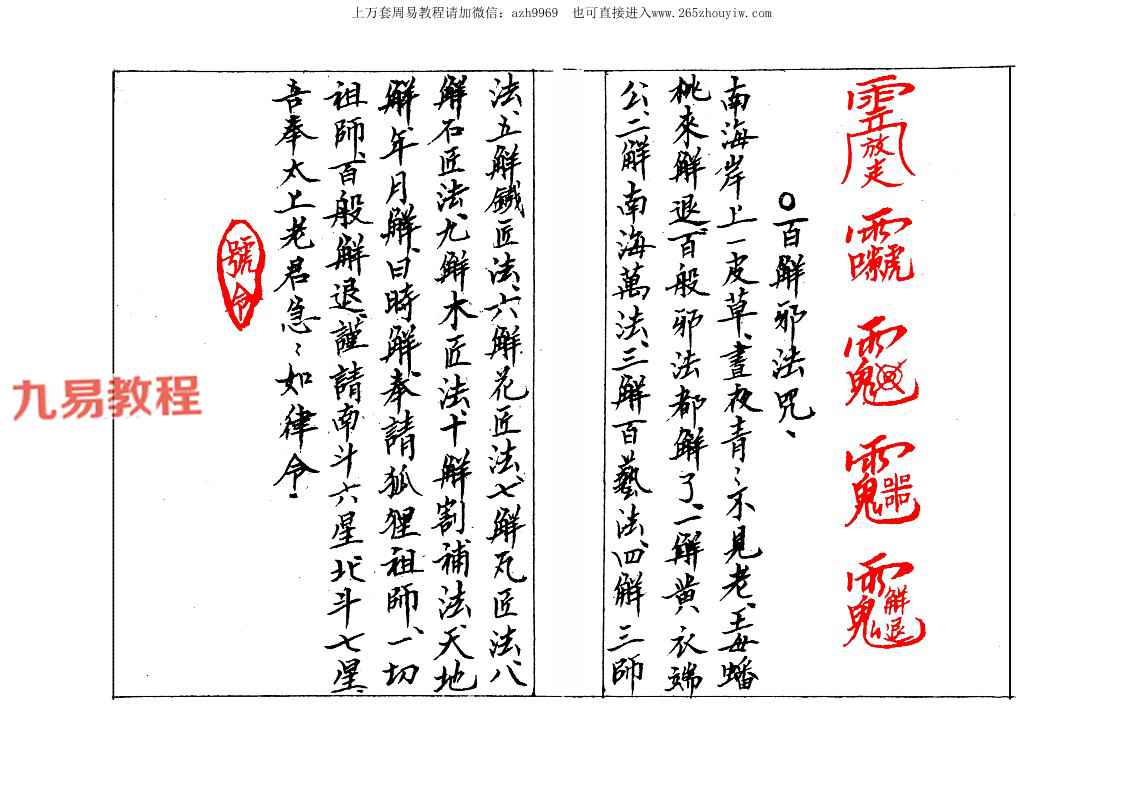 上万套周易教程请加微信：azh9969 也可直接进入www.265zhouyiw.com
放走
解退
○百解邪法咒、
南海岸上一皮草、晝夜青〻不見老、王母蟠
桃來解退、百般邪法都解了、一解黄衣端
公、二解南海萬法、三解百藝法、四解三師
法、五解鐵匠法、六解花匠法、七解瓦匠法、八
解石匠法、九解木匠法、十解割補法、天地
解、年月解、日時解、奉請狐狸祖師、一切
祖師、百般解退、謹請南斗六星、北斗七星、
吾奉太上老君急〻如律令.
號令
九易教程